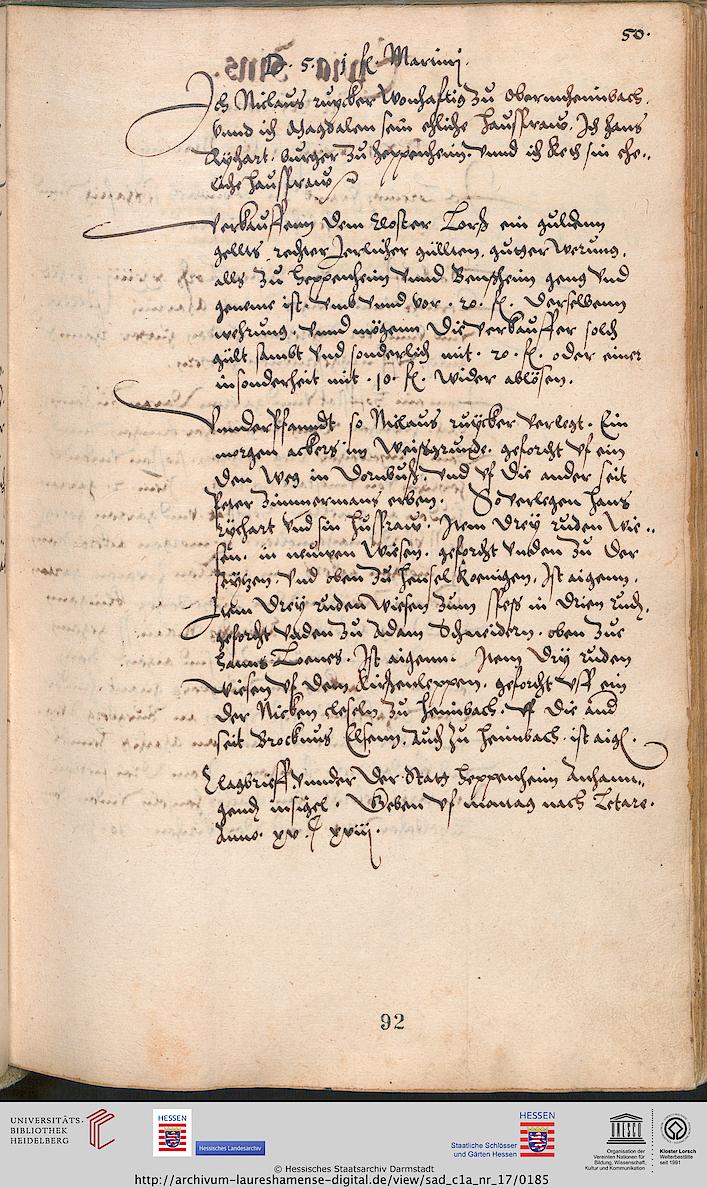 50.
D. 5. 1 fl. Martinj.
Ich Niclaus ruycker wonhafftig zu obermheimbach.
vnnd ich Magdalen sein ehliche haussfraw. Ich hans
Rychart. burger zu heppenheim. vnnd ich Keth sin ehe„
liche haussfraw
verkauffenn dem Closter Lorß ein guldenn
gellts rechter Jerlicher güllten. gutter werung.
alls zu heppenheim vnnd Benßheim geng vnd
geneme ist. vmb vnnd vor. 20. fl. derselbenn
wehrung. vnnd mögenn die verkauffer solch
gült sambt vnd sonderlich mit. 20. fl. oder einer
in sonderheit mit. 10. fl. wider ablösen.
Vnnderpfanndt so Niclaus ruycker verlegt. Ein
morgen ackers im Weißgrunde. geforcht vf ein
den weg in dornbuß. vnd vf die ander seit
Peter Zimmermans erben. So verlegen hans
rychart vnd sin hussfraw. Item drey ruden wie„
sen. in neuwen wiesen. geforcht vnden zu der
vnd oben zu hensel Koenigen. Ist aigenn.
Item drey ruden wiesen zum in drien rud.
geforcht vnden zu Adam Schneidern. oben zue
hanns Loenes. Ist aigenn. Item dry ruden
wiesen vf dem Kirchenleppen. geforcht vff ein
der Nicken cleseln zu heimbach. vf die and
seit Brocknus Elsenn. auch zu heimbach. ist aige.
Clagbrieff vnnder der Statt heppenheim Anhann„
gend insigel. Geben vf montag nach Letare.
Anno. xv. C xviij.
92
UNIVERSITÄTS-
BIBLIOTHEK
HEIDELBERG
HESSEN
Hessisches Landesarchiv
HESSEN
Staatliche Schlösser
und Gärten Hessen
Organisation der
Vereinten Nationen für
Bildung, Wissenschaft,
Kultur und Kommunikation
Kloster Lorsch
Welterbestätte
seit 1991
© Hessisches Staatsarchiv Darmstadt
http://archivum-laureshamense-digital.de/view/sad_c1a_nr_17/0185